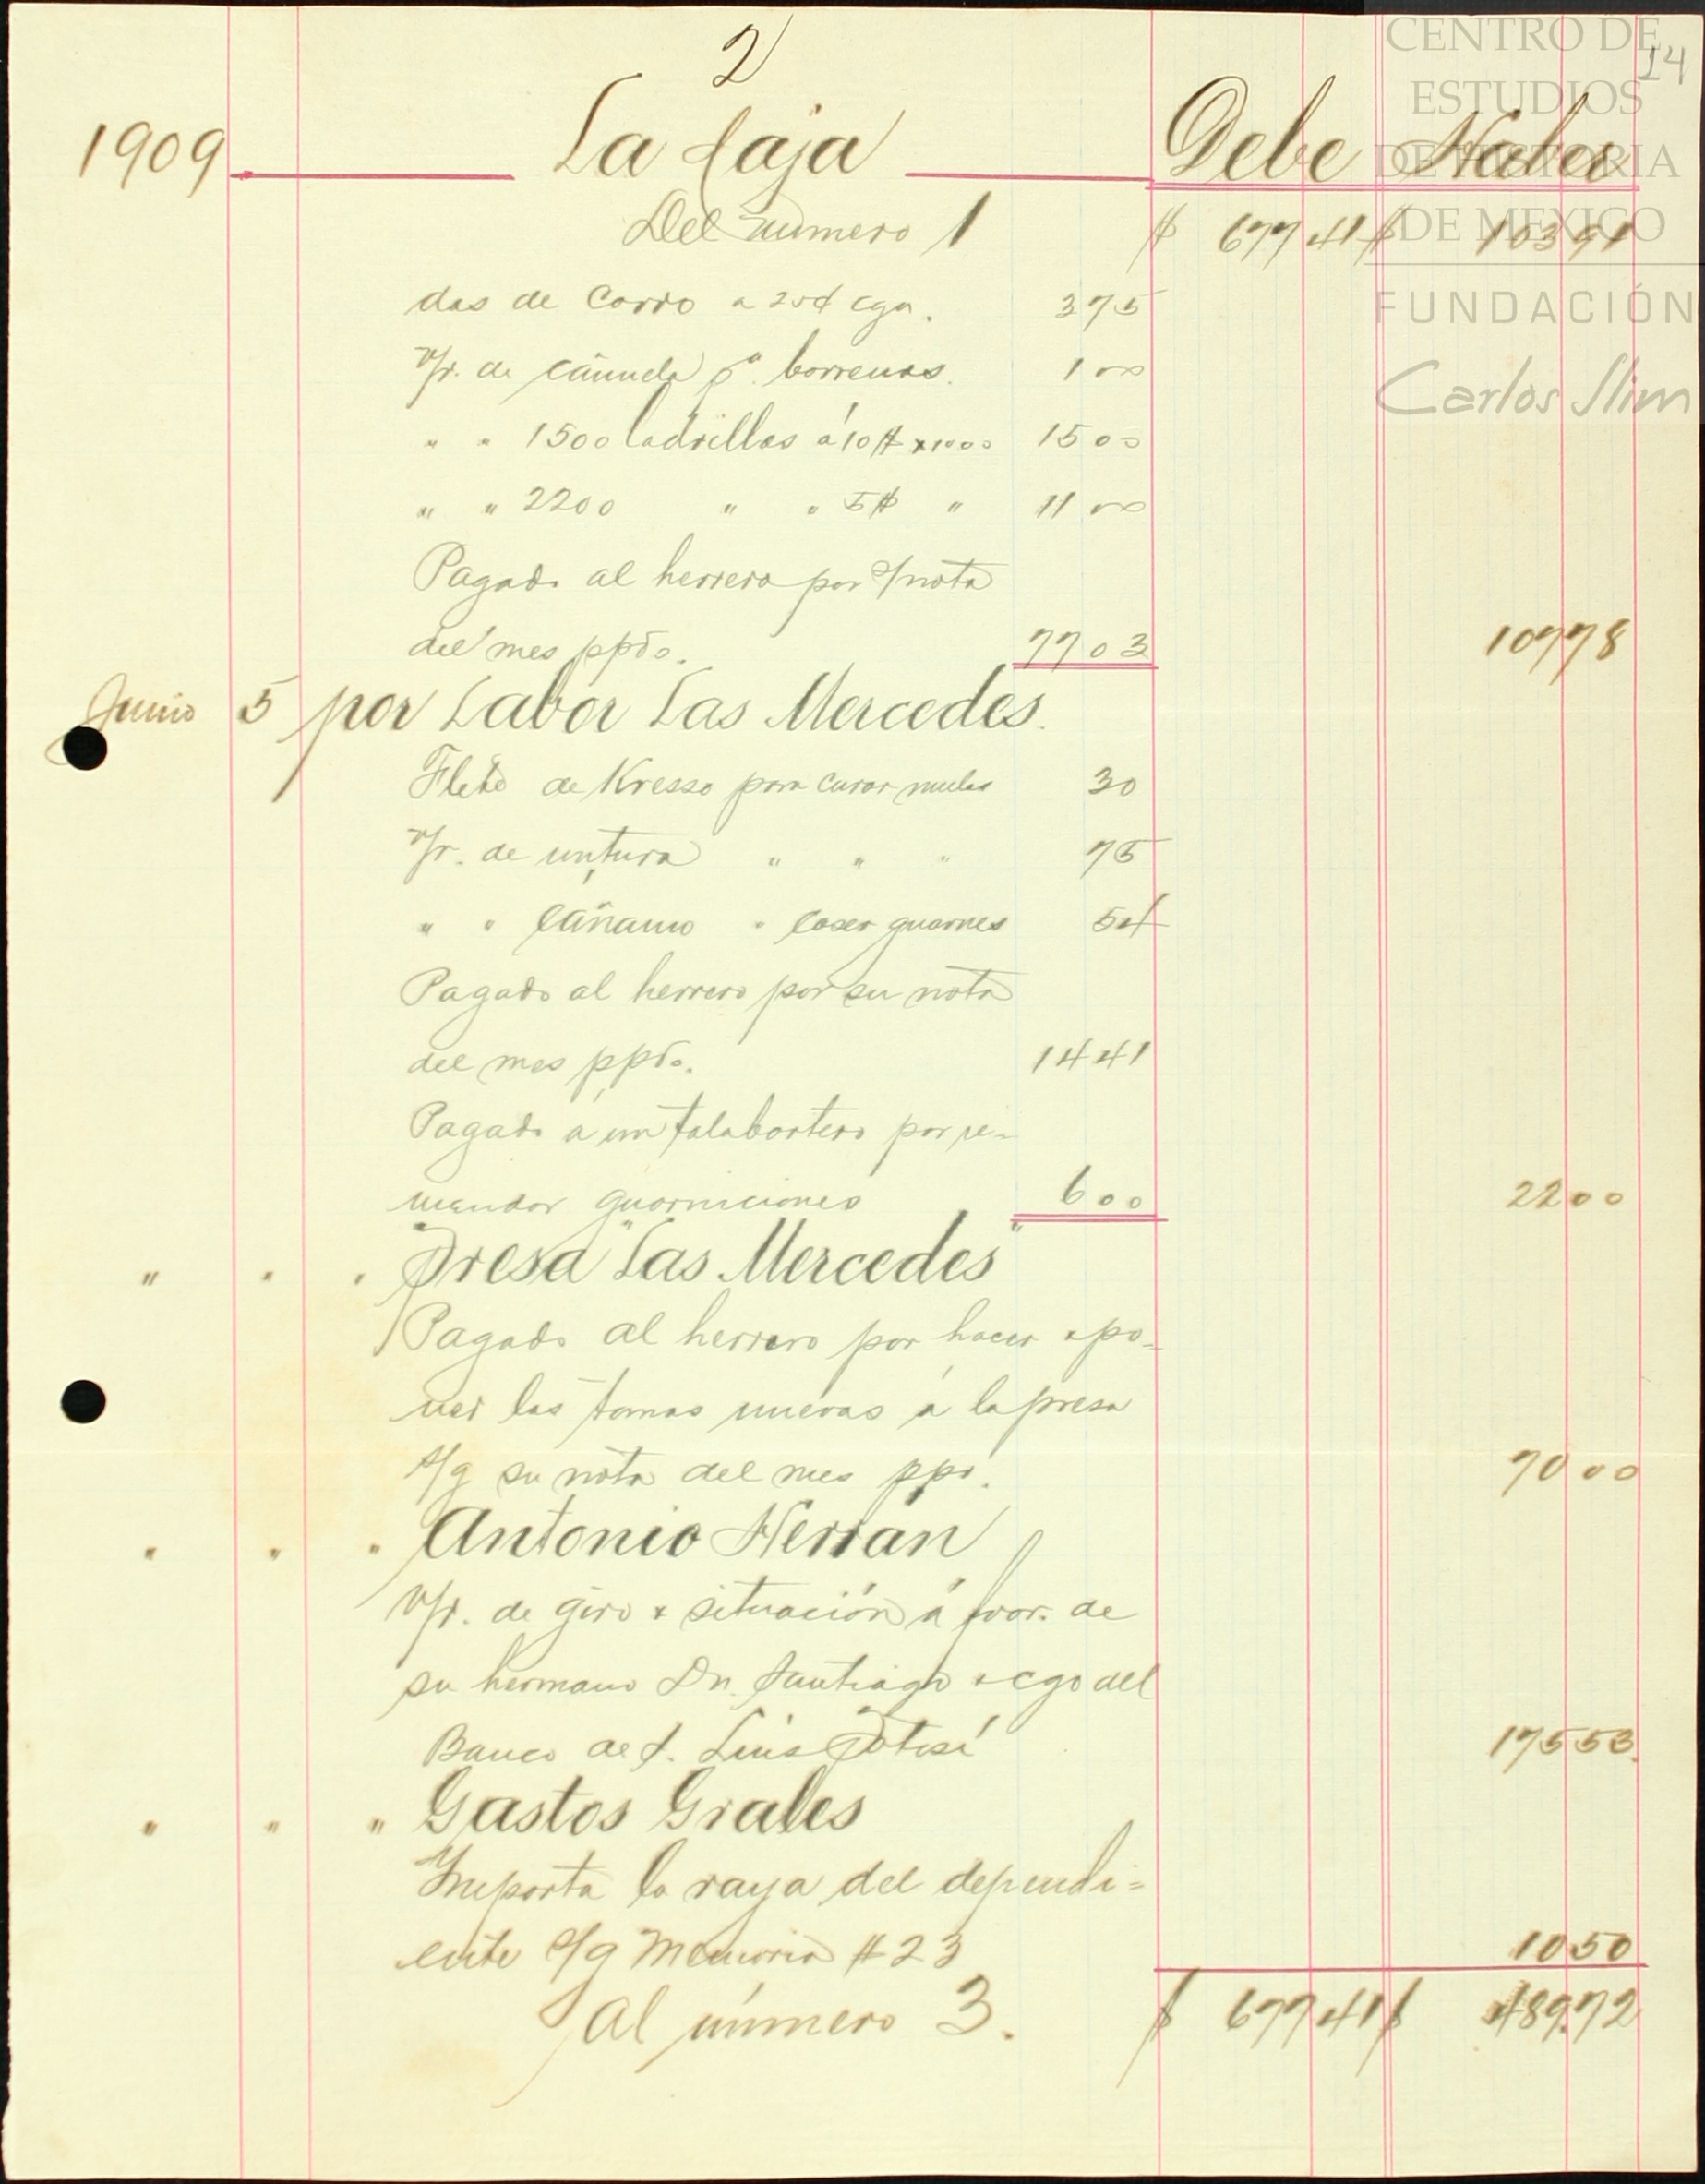 2
14
1909 La Caja Debe Haber
Del número 1 $ 677 41 $ 103 91
das de Carro a 25¢ cga. 3 75
V/r. de cañuela pª. barrenas. 1 00
" " 1500 ladrillos á 10 $ x 1000 15 00
" " 2200 " " 5 $ " 11 00
Pagado al herrero por s/nota
del mes ppdo. 77 03 107 78
Junio 5 por Labor Las Mercedes.
Flete de Kresso para curar mulas 30
V/r. de untura " " " 75
" " Cáñamo " coser guarnes 54
Pagado al herrero por su nota
del mes ppdo. 14 41
Pagado á un talabartero por re-
mendar guarniciones 6 00 22 00
" " " Presa "Las Mercedes"
Pagado al herrero por hacer x po-
ner las tomas nuevas á la presa
s/g su nota del mes ppo. 70 00
" " " Antonio Herrán
V/r. de giro x situación á fvor. de
su hermano Dn. Santiago x cgo del
Banco de S. Luis Potosí 175 53
" " " Gastos Grales
Importa la raya del dependi=
ente s/g Memoria # 23 10 50
Al número 3. $ 677 41 $ 489.72
CENTRO DE
ESTUDIOS
DE HISTORIA
DE MEXICO
FUNDACIÓN
Carlos Slim